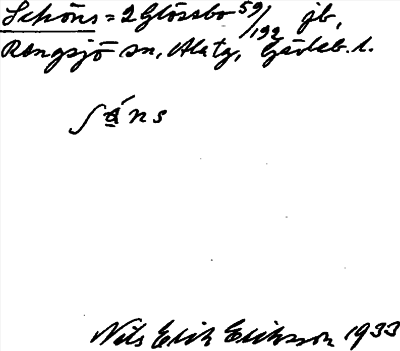 Schöns = 2 Glössbo 59/192 jb,
Rengsjö sn, Alatg, Gävleb. l.
ʃǻns
Nils Erik Eriksson 1933